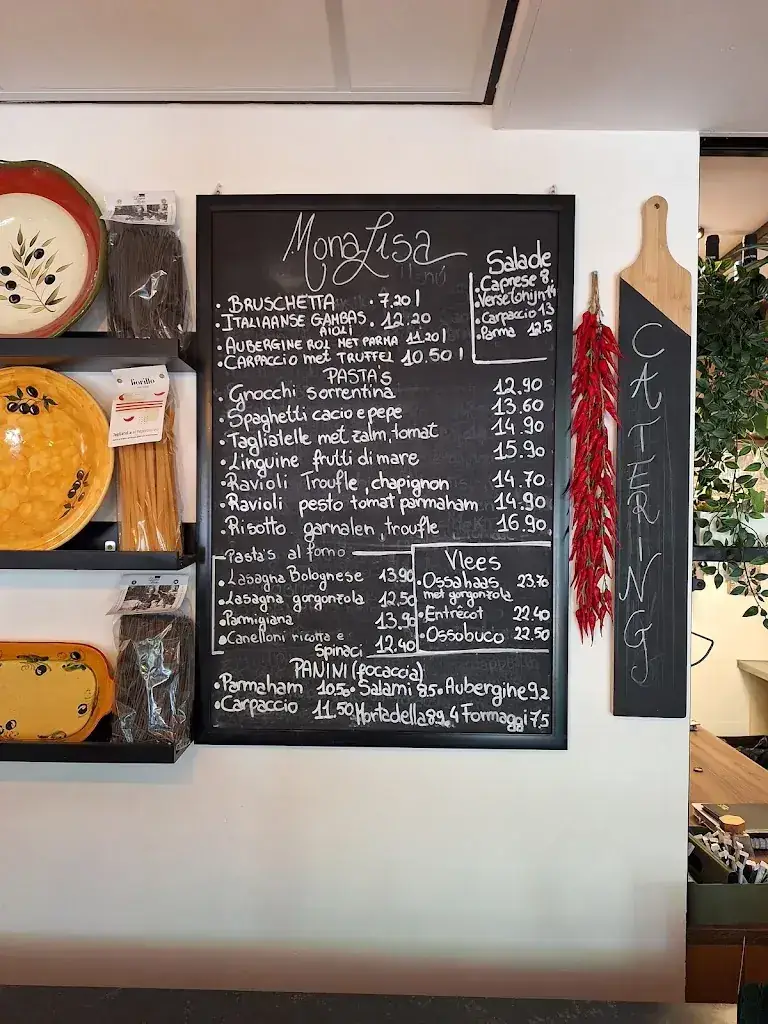 Mona Lisa
BRUSCHETTA . 7,20
ITALIAANSE GAMBAS 12.20
AIOLI
AUBERGINE ROL MET PARMA 11.20
CARPACCIO met TRUFFEL 10.50
Salade
Caprese 8.
Verse tonijn 14
Carpaccio 13
Parma 12.5
PASTA'S
Gnocchi sorrentina 12.90
Spaghetti cacio e pepe 13.60
Tagliatelle met zalm, tomat 14.90
Linguine frutti di mare 15.90
Ravioli Troufle, chapignon 14.70
Ravioli pesto tomat parmaham 14.90
Risotto garnalen, troufle 16.90
Pasta's al forno
Lasagna Bolognese 13.90
Lasagna gorgonzola 12,50
Parmigiana 13.90
Canelloni ricotta e
spinaci 12.40
Vlees
Ossahaas 23.70
met gorgonzola
Entrêcot 22.40
Ossobuco 22.50
PANINI (focaccia)
Parmaham 10.50 Salami 8.5 Aubergine 9,2
Carpaccio 11.50 Mortadella 8,9 4 Formaggi 7,5
CATERING
fiorillo